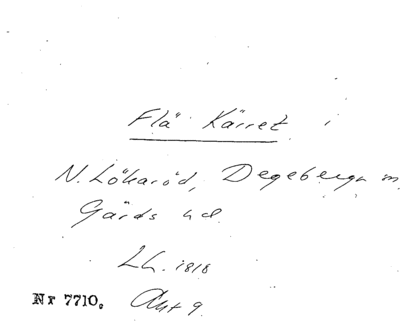 Flä Kärret
N. Lökaröd, Degeberga
Gärds hd.
LH. 1818
Nr 7710. Akt 9.